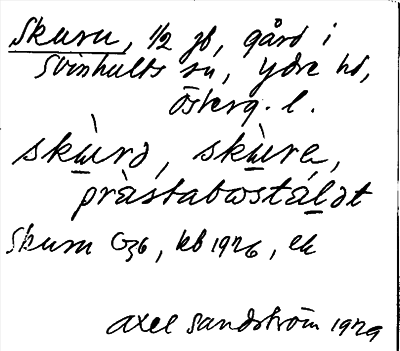 Skuru, 1/2 jb, gård i
Svinhults sn, Ydre hd,
Österg. l.
skẁrd, skẁra,
pràstabostáldt
Skuru G36, kb 1926, ek
Axel Sandström 1929